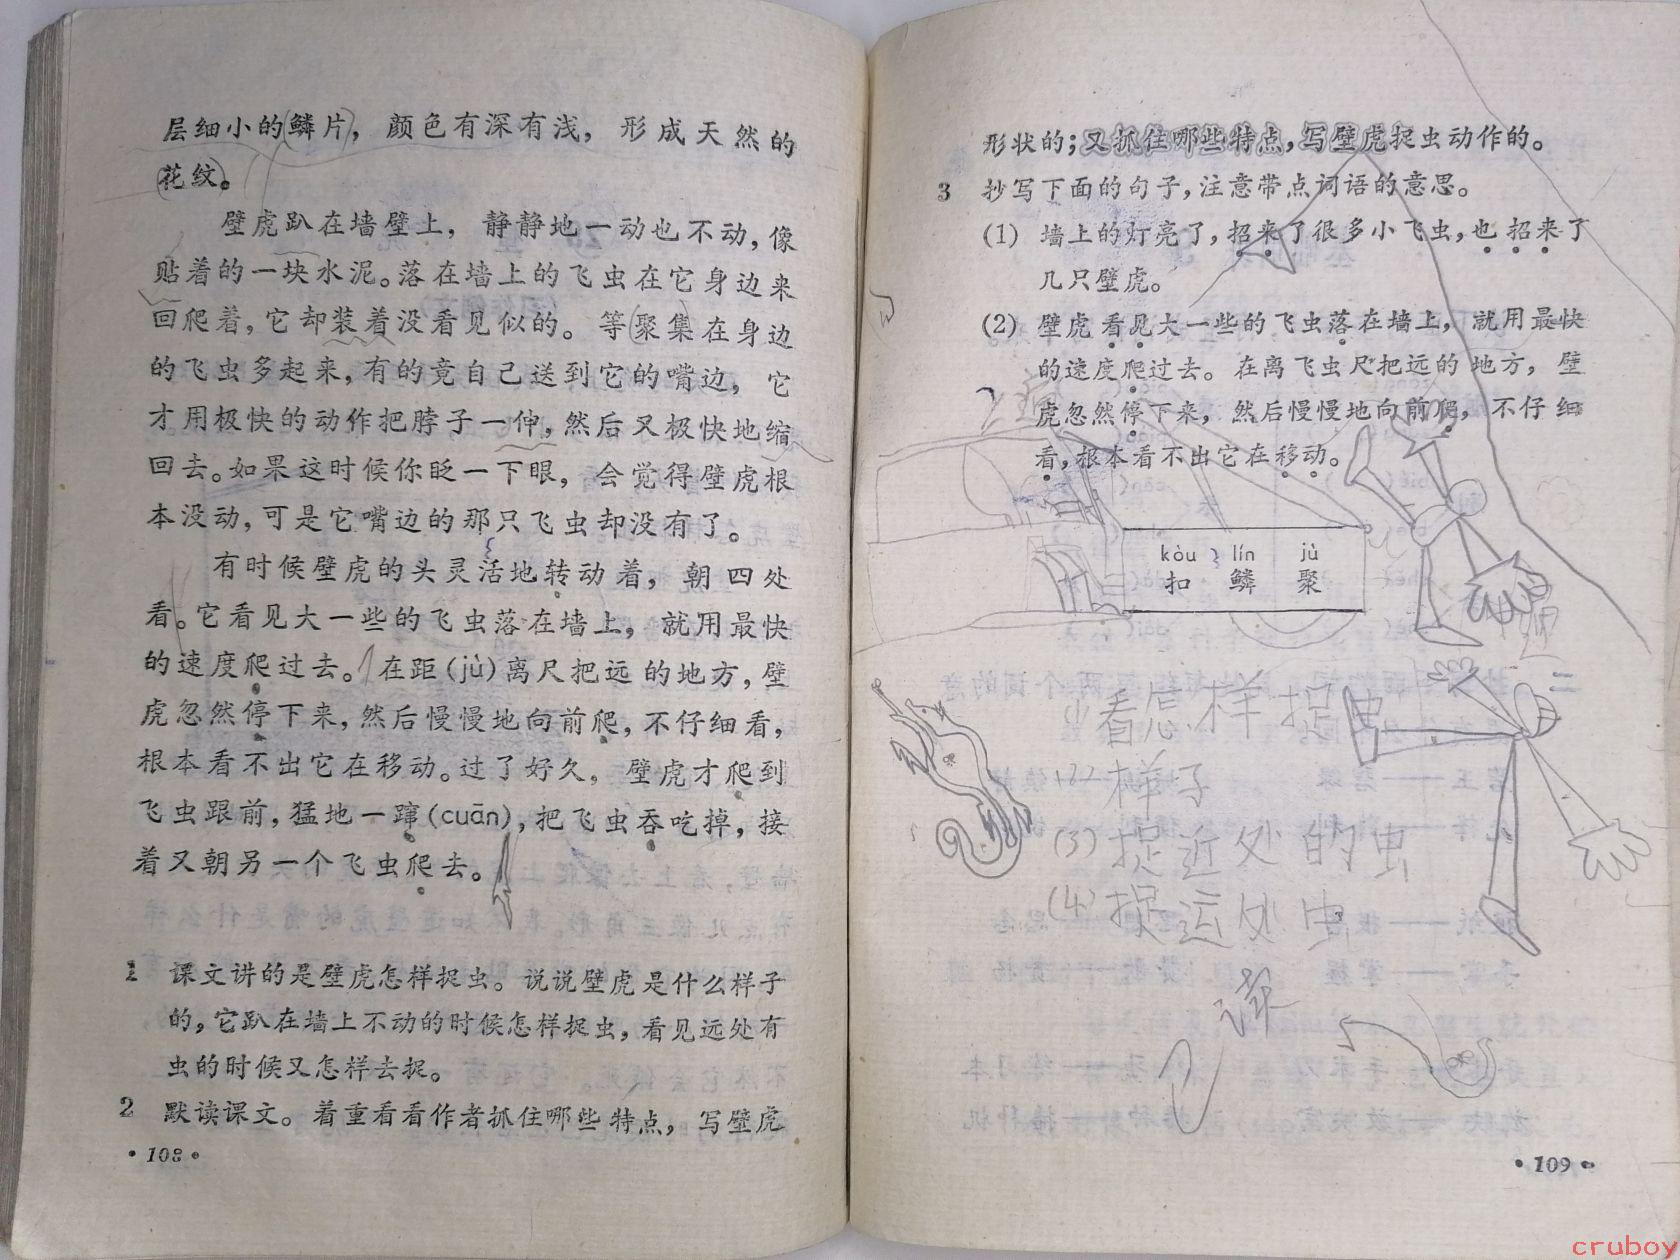 层细小的鳞片，颜色有深有浅，形成天然的
花纹。
壁虎趴在墙壁上，静静地一动也不动，像
贴着的一块水泥。落在墙上的飞虫在它身边来
回爬着，它却装着没看见似的。等聚集在身边
的飞虫多起来，有的竟自己送到它的嘴边，它
才用极快的动作把脖子一伸，然后又极快地缩
回去。如果这时候你眨一下眼，会觉得壁虎根
本没动，可是它嘴边的那只飞虫却没有了。
有时候壁虎的头灵活地转动着，朝四处
看。它看见大一些的飞虫落在墙上，就用最快
的速度爬过去。在距(jù)离尺把远的地方，壁
虎忽然停下来，然后慢慢地向前爬，不仔细看，
根本看不出它在移动。过了好久，壁虎才爬到
飞虫跟前，猛地一蹿(cuān)，把飞虫吞吃掉，接
着又朝另一个飞虫爬去。
1 课文讲的是壁虎怎样捉虫。说说壁虎是什么样子
的，它趴在墙上不动的时候怎样捉虫，看见远处有
虫的时候又怎样去捉。
2 默读课文。着重看看作者抓住哪些特点，写壁虎
·108·
形状的；又抓住哪些特点，写壁虎捉虫动作的。
3 抄写下面的句子，注意带点词语的意思。
(1) 墙上的灯亮了，招来了很多小飞虫，也招来了
几只壁虎。
(2) 壁虎看见大一些的飞虫落在墙上，就用最快
的速度爬过去。在离飞虫尺把远的地方，壁
虎忽然停下来，然后慢慢地向前爬，不仔细
看，根本看不出它在移动。
kòu lín jù
扣 鳞 聚
看怎样捉虫
(2) 样子
(3) 捉近处的虫
(4) 捉远处虫
·109·
cruboy